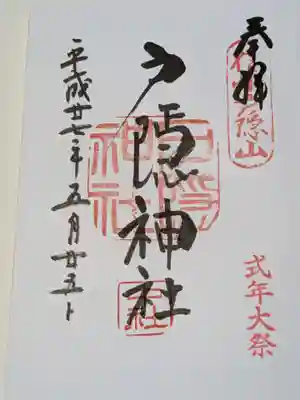 奉拝
隠山
式年大祭
戸隠神社
平成廿七年五月廿五日